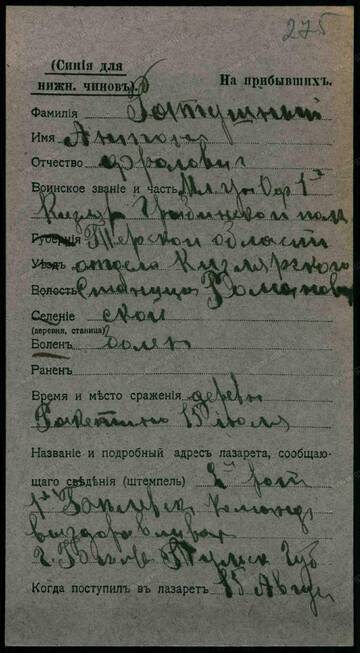 275
(Синія для
нижн. чиновъ). На прибывшихъ.
Фамилія Ратушный
Имя Антон
Отчество Фролович
Воинское званіе и часть Мл. Ун. Оф. 1й
Кизляр Гребинской полк
Губернія Терской области
Уѣздъ отдела Кизлярского
Волость Станица Романов
Селеніе ской
(деревня, станица)
Боленъ болен
Раненъ
Время и мѣсто сраженія деревн
15 июля
Названіе и подробный адресъ лазарета, сообщаю-
щаго свѣдѣнія (штемпель) 2й рот
команд
выздоравливах
г. Тульск Губ
Когда поступилъ въ лазаретъ 15 Авгус